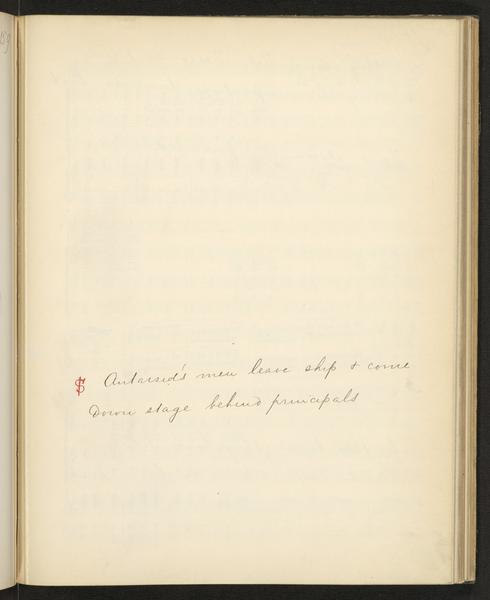 Antarsid's men leave ship & come
Down stage behind principals